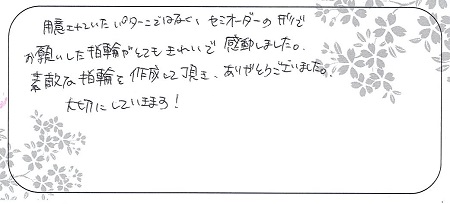 用意されていたパターンではなく、セミオーダーの形で
お願いした指輪がとてもきれいで感動しました。
素敵な指輪を作成して頂き、ありがとうございました。!
大切にしていきます!